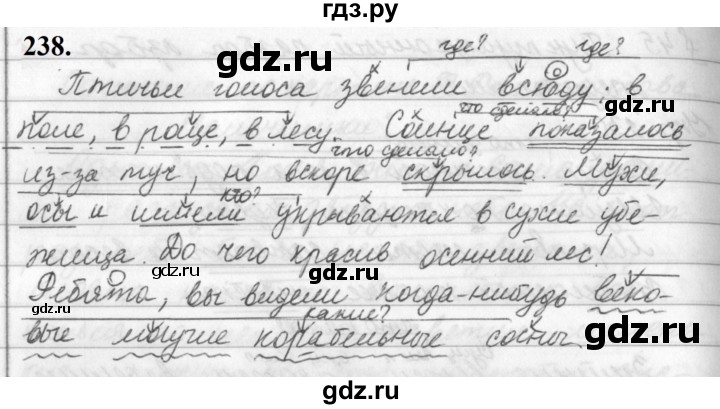 гдз.ру
238.
где? где?
Птичьи голоса звенели всюду: в
что сделало?
поле, в роще, в лесу. Солнце показалось
что сделало?
из-за туч, но вскоре скрылось. Мухи,
кто?
осы и шмели укрываются в сухие убе-
жища. До чего красив осенний лес!
gdz.ru
gdz.ru
Ребята, вы видели когда-нибудь веко-
какие?
вые могучие корабельные сосны
gdz.ru
gdz.ru
gdz.ru